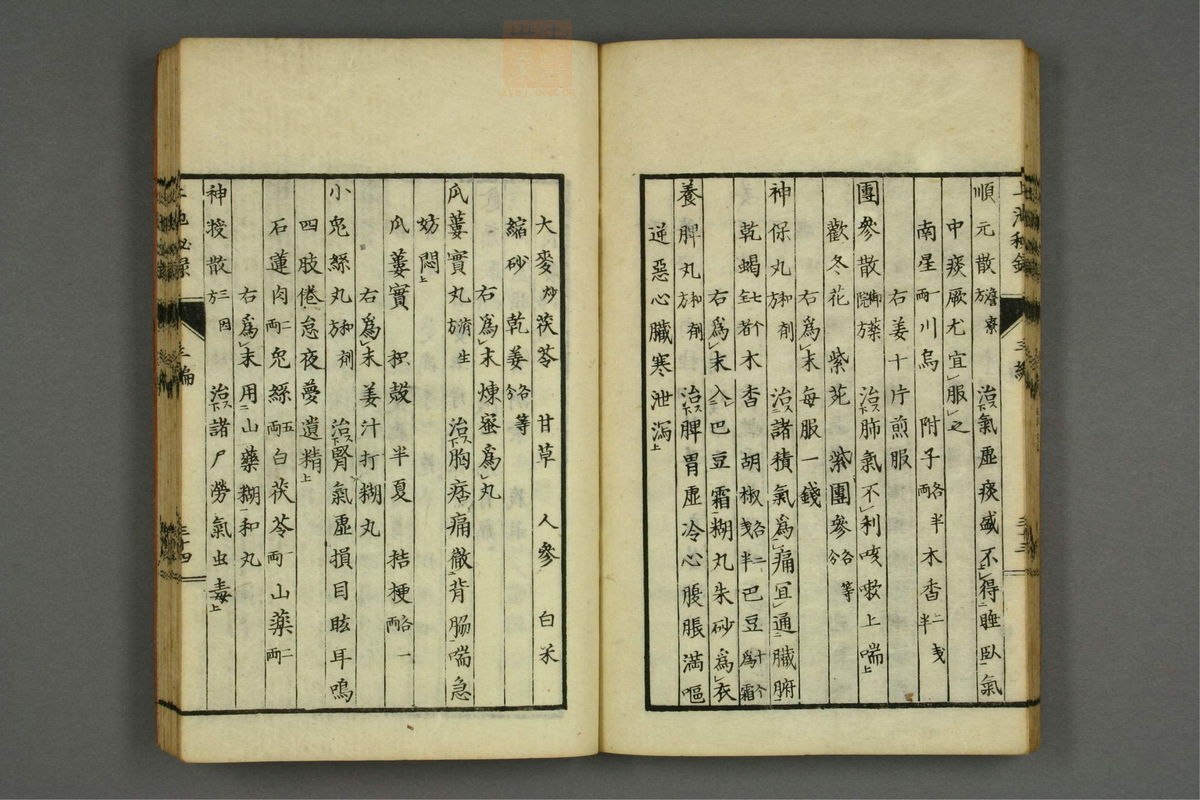 順元散 濟寮方 治氣虛痰盛不得睡臥氣
中痰厥尤宜服之
南星一両 川烏 附子各半両 木香二戔半
右姜十片煎服
團參散 御藥院方 治肺氣不利咳嗽上喘
歡冬花 紫菀 紫團參各等分
右爲末每服一錢
神保丸 和劑方 治諸積氣爲痛宜通臓腑
乾蝎七个全者 木香 胡椒各二戔半 巴豆十个爲霜
右爲末入巴豆霜糊丸朱砂爲衣
養脾丸 和劑方 治脾胃虛冷心腹脹満嘔
逆惡心臓寒泄瀉
三十三
大麥炒 茯苓 甘草 人參 白朮
縮砂 乾姜各等分
右爲末煉蜜爲丸
瓜蔞實丸 済生方 治胸痞痛徹背脇喘急
妨悶
瓜蔞實 枳殻 半夏 桔梗各一両
右爲末姜汁打糊丸
小兎絲丸 和劑方 治腎氣虛損目眩耳鳴
四肢倦怠夜夢遺精
石蓮肉二両 兎絲五両 白茯苓一両 山藥二両
右爲末用山藥糊和丸
神授散 三因方 治諸尸勞氣虫毒
三編
三十四